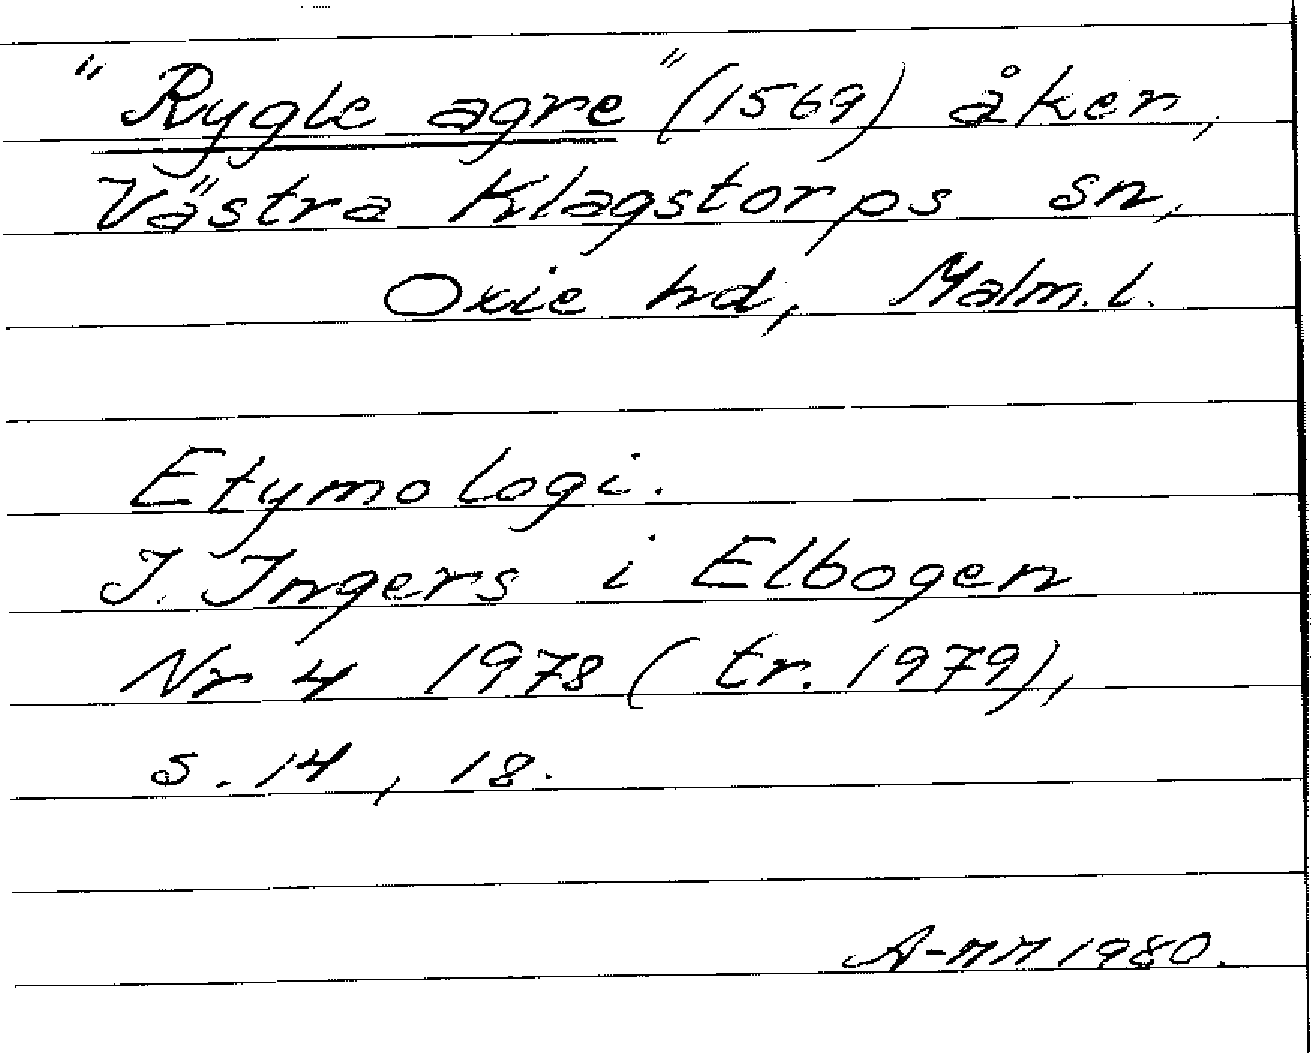 "Rygle agre" (1569) åker,
Västra Klagstorps sn,
Oxie hd, Malm. l.
Etymologi.
I. Ingers i Elbogen
Nr 4 1978 ( tr. 1979),
s. 14, 18.
A-MM 1980.